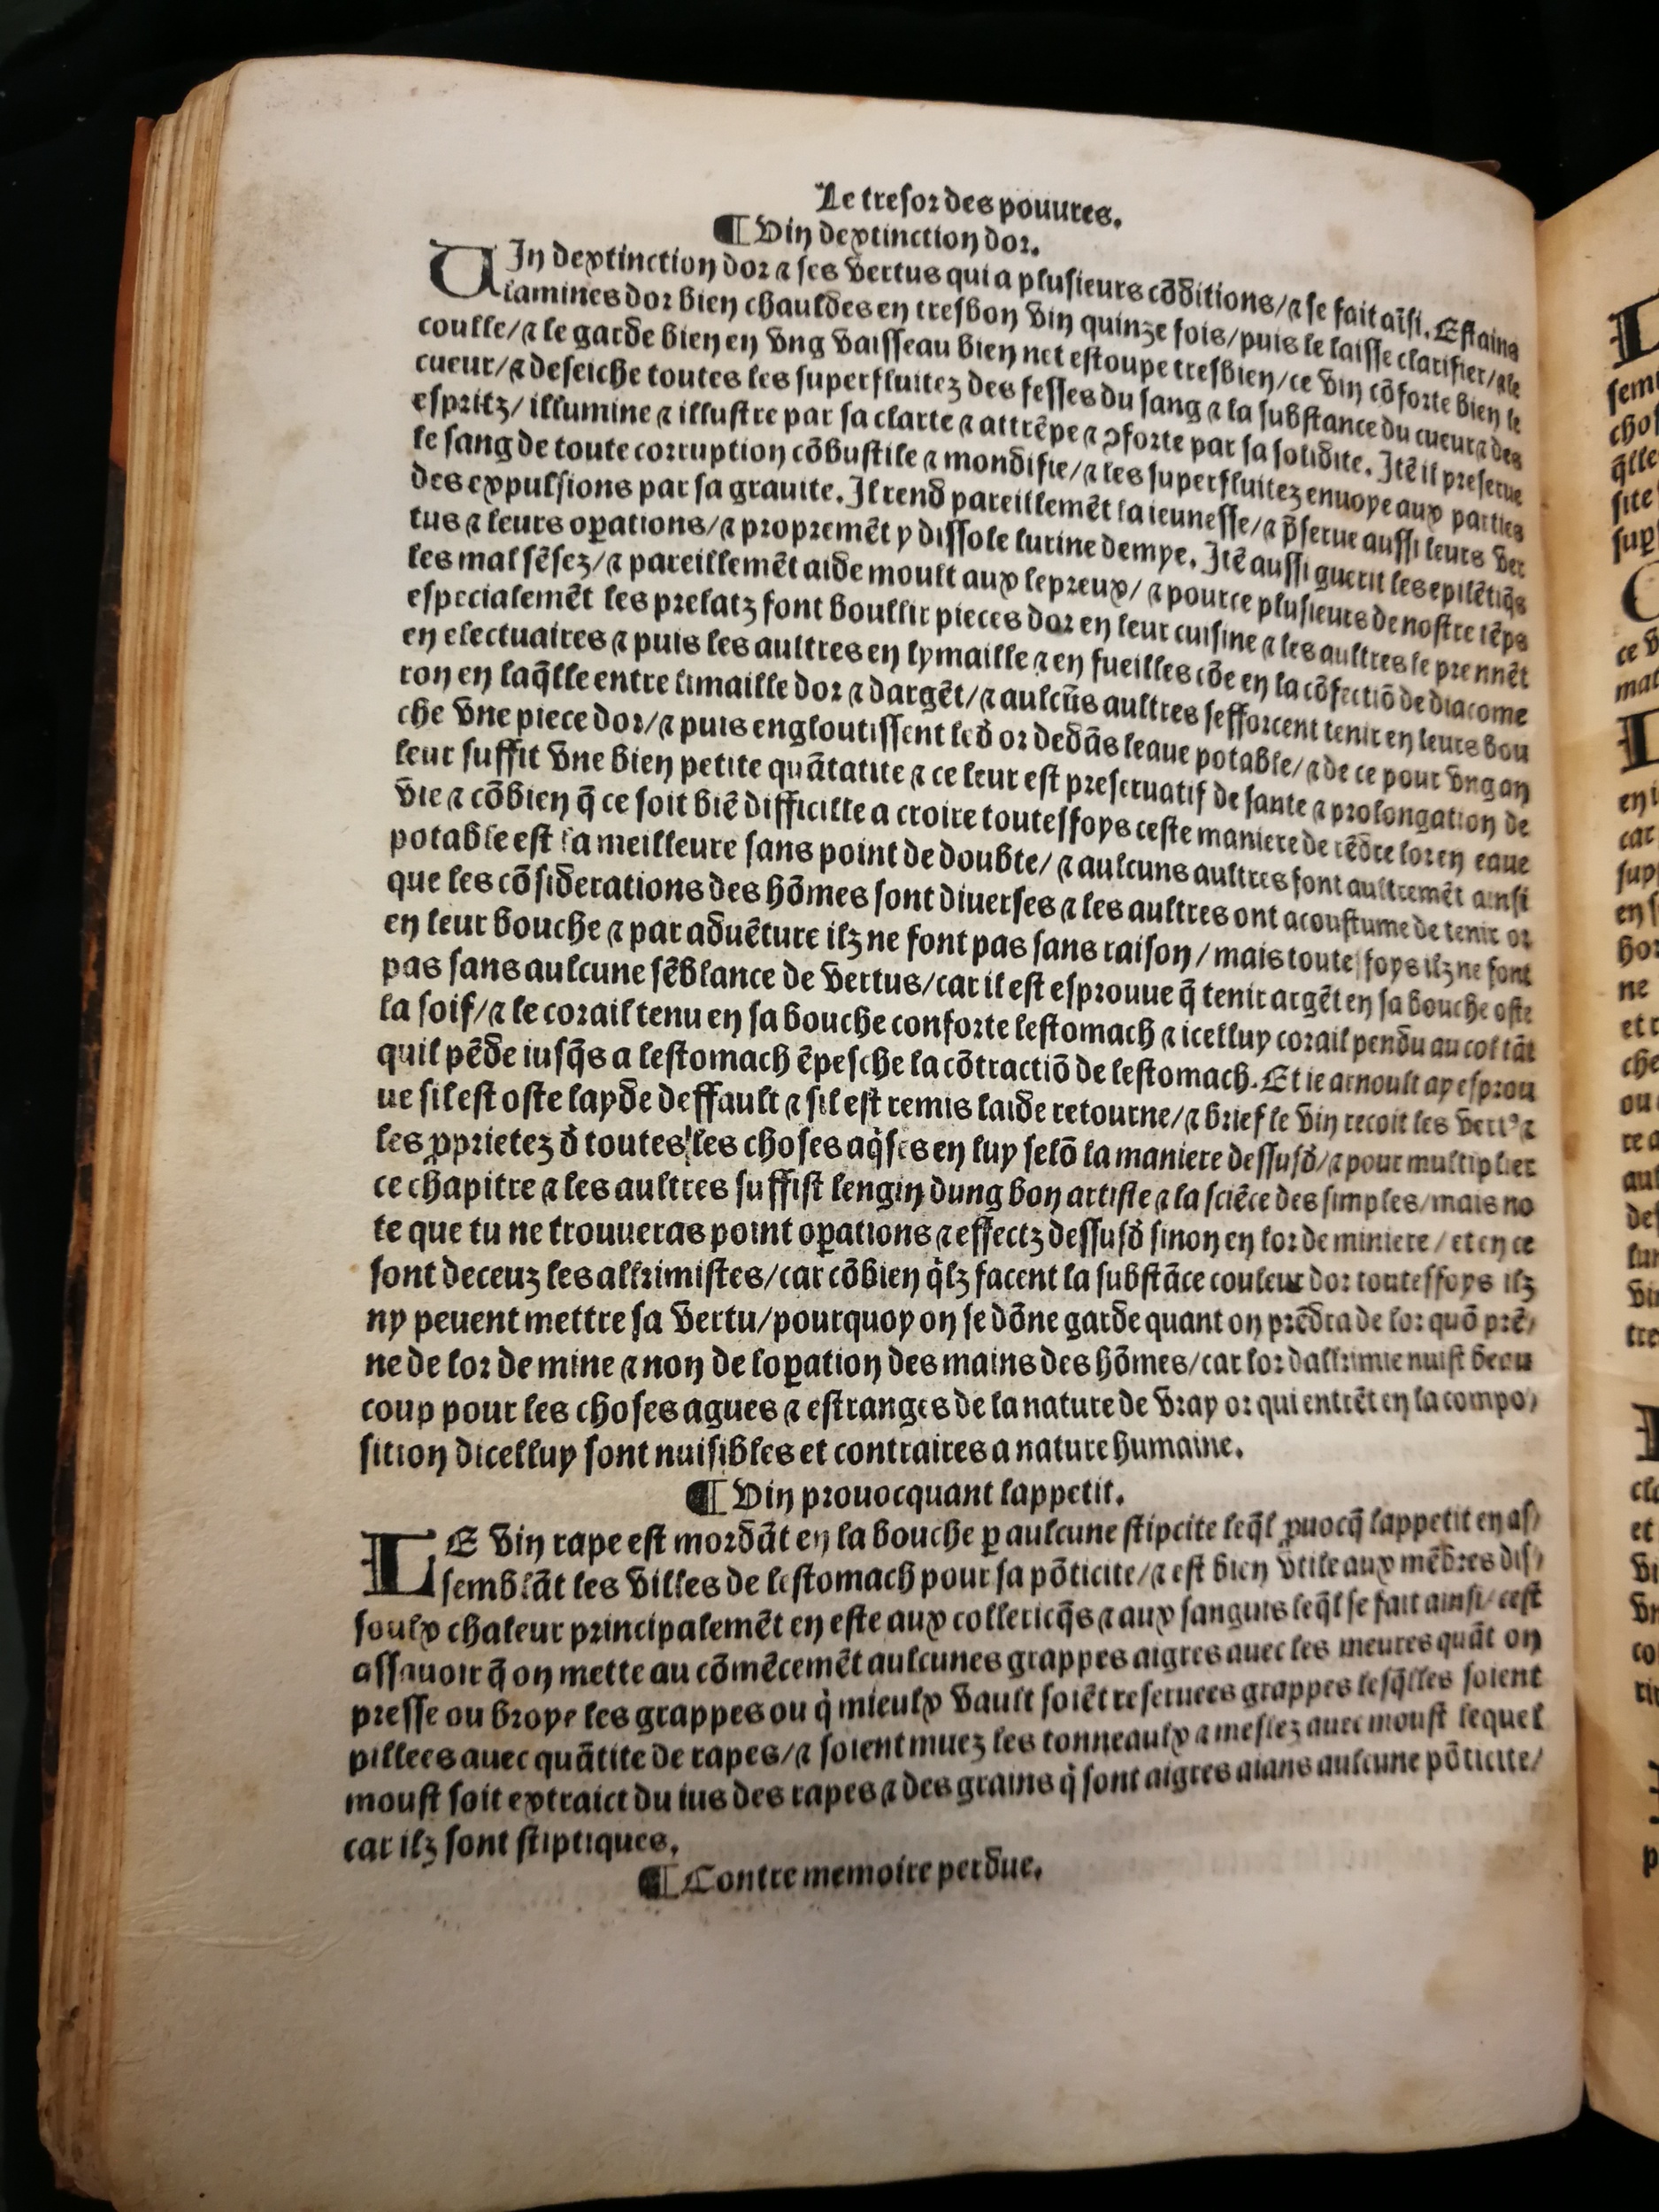 Le tresor des pouures.
¶ Vin dextinction dor.
VIn dextinction dor ⁊ ses vertus qui a plusieurs cõditions/⁊ se fait aĩsi. Estains
lamines dor bien chauldes en tresbon vin quinze fois/puis le laisse clarifier/⁊ le
coulle/⁊ le garde bien en vng vaisseau bien net estoupe tresbien/ce vin cõforte bien le
cueur/⁊ deseiche toutes les superfluitez des fesses du sang ⁊ la substance du cueur ⁊ des
espritz/ illumine ⁊ illustre par sa clarte ⁊ attrẽpe ⁊ ꝯforte par sa solidite. Itẽ il preserue
le sang de toute corruption cõbustile ⁊ mondifie/⁊ les superfluitez enuoye aux parties
des expulsions par sa grauite. Il rend pareillemẽt la ieunesse/⁊ p̃serue aussi leurs ver
tus ⁊ leurs oꝑations/⁊ propremẽt y dissole lurine dempe. Itẽ aussi guerit les epilẽtiq̃s
les mal sẽsez/⁊ pareillemẽt aide moult aux lepreux/ ⁊ pource plusieurs de nostre tẽps
especialemẽt les prelatz font boullir pieces dor en leur cuisine ⁊ les aultres le prennẽt
en electuaires ⁊ puis les aultres en lymaille ⁊ en fueilles cõe en la cõfectiõ de diacome
ron en laq̃lle entre limaille dor ⁊ dargẽt/⁊ aulcũs aultres sefforcent tenir en leurs bou
che vne piece dor/⁊ puis engloutissent led̉ or dedãs leaue potable/⁊ de ce pour vng an
leur suffit vne bien petite quãtatite ⁊ ce leur est preseruatif de sante ⁊ prolongation de
vie ⁊ cõbien q̃ ce soit biẽ difficille a croire toutesfoys ceste maniere de rẽdre lor en eaue
potable est la meilleure sans point de doubte/ ⁊ aulcuns aultres font aultremẽt ainsi
que les cõsiderations des hõmes sont diuerses ⁊ les aultres ont acoustume de tenir or
en leur bouche ⁊ par aduẽture ilz ne font pas sans raison / mais toutesfoys ilz ne font
pas sans aulcune sẽblance de vertus/car il est esprouue q̃ tenir argẽt en sa bouche oste
la soif/⁊ le corail tenu en sa bouche conforte lestomach ⁊ icelluy corail pendu au col tãt
quil pẽde iusq̃s a lestomach ẽpesche la cõtractiõ de lestomach. Et ie arnoult ay esprou
ue sil est oste layde deffault ⁊ sil est remis laide retourne/⁊ brief le vin recoit les vertꝰ ⁊
les ꝓprietez d̉ toutes les choses aq̃ses en luy selõ la maniere dessusd̉/⁊ pour multiplier
ce chapitre ⁊ les aultres suffist lengin dung bon artiste ⁊ la sciẽce des simples/mais no
te que tu ne trouueras point oꝑations ⁊ effectz dessusd̉ sinon en lor de miniere / et en ce
sont deceuz les alkimistes/car cõbien q̃lz facent la substãce couleur dor toutesfoys ilz
ny peuent mettre sa vertu/pourquoy on se dõne garde quant on prẽdra de lor quõ prẽ⸗
ne de lor de mine ⁊ non de loꝑation des mains des hõmes/car lor dalkimie nuist beau
coup pour les choses agues ⁊ estranges de la nature de vray or qui entrẽt en la compo⸗
sition dicelluy sont nuisibles et contraires a nature humaine.
¶ Vin prouocquant lappetit.
LE vin rape est mordãt en la bouche ꝑ aulcune stipcite leq̃l ꝓuocq̃ lappetit en as⸗
semblãt les villes de lestomach pour sa põticite/⁊ est bien vtile aux mẽbres dis⸗
soulx chaleur principalemẽt en este aux collericq̃s ⁊ aux sanguis leq̃l se fait ainsi/cest
assauoir q̃ on mette au cõmẽcemẽt aulcunes grappes aigres auec les meures quãt on
presse ou broye les grappes ou q̉ mieulx vault soiẽt reseruees grappes lesq̃lles soient
pillees auec quãtite de rapes/⁊ soient muez les tonneaulx ⁊ meslez auec moust lequel
moust soit extraict du ius des rapes ⁊ des grains q̉ sont aigres aians aulcune põticite/
car ilz sont stiptiques.
¶ Contre memoire perdue.